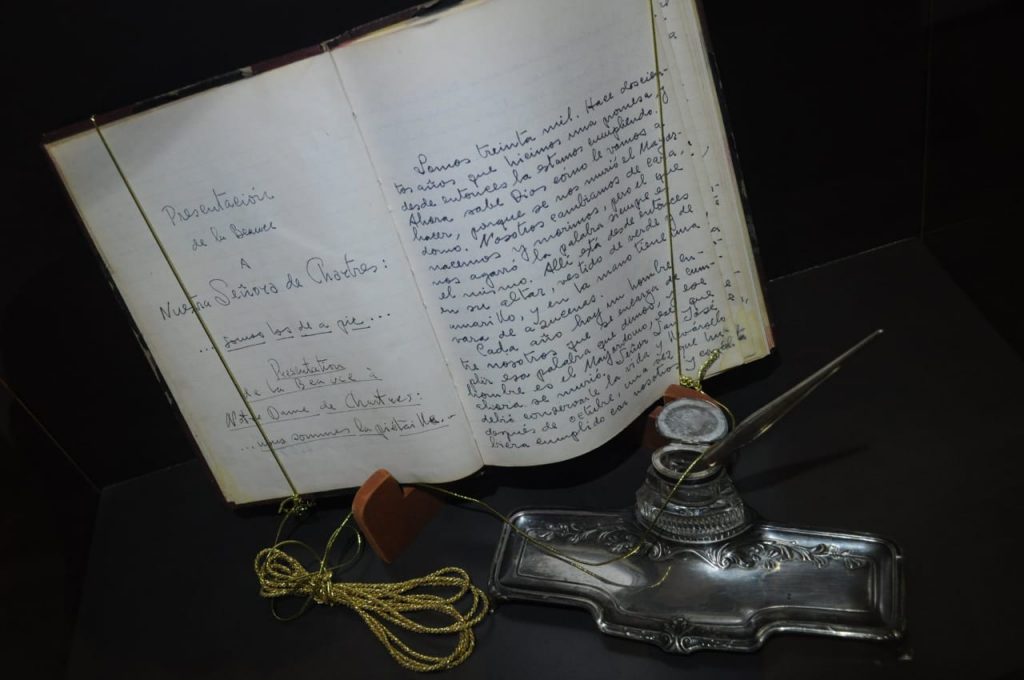 Presentación
de la Beauce
A
Nuestra Señora de Chartres:
... somos los de a pie ...
Présentation
de la Beauce à
Notre Dame de Chartres:
... nous sommes la piétaille.-
Somos treinta mil. Hace doscien-
tos años, que hicimos una promesa, y
desde entonces la estamos cumpliendo.
Ahora sabe Dios cómo le vamos a
hacer, porque se nos murió el Mayor-
domo. Nosotros cambiamos de cara,
nacemos y morimos, pero el que
nos agarró la palabra siempre es
el mismo. Allí está desde entonces
en su altar, vestido de verde y de
amarillo, y en la mano tiene una
vara de azucenas.
Cada año hay un hombre en-
tre nosotros que se encarga de cum-
plir esa palabra que dimos, y ese
hombre es el Mayordomo, el que
ahora se murió. Señor San José
debió conservarle la vida y llevárselo
después de octubre, una vez que hu-
biera cumplido con nosotros y